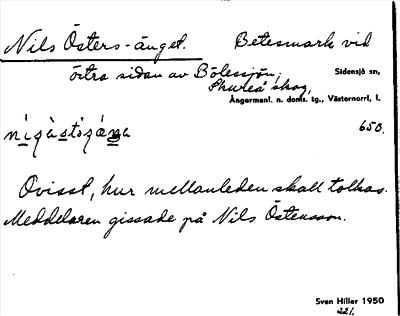 Nils Östers-änget. Betesmark vid
östra sidan av Bölessjön,
Sidensjö sn,
skog,
Ångermanl. n. doms. tg., Västernorrl. l.
650.
Ovisst, hur mellanleden skall tolkas.
Meddelaren gissade på Nils Östensson.
Sven Hiller 1950
22/.